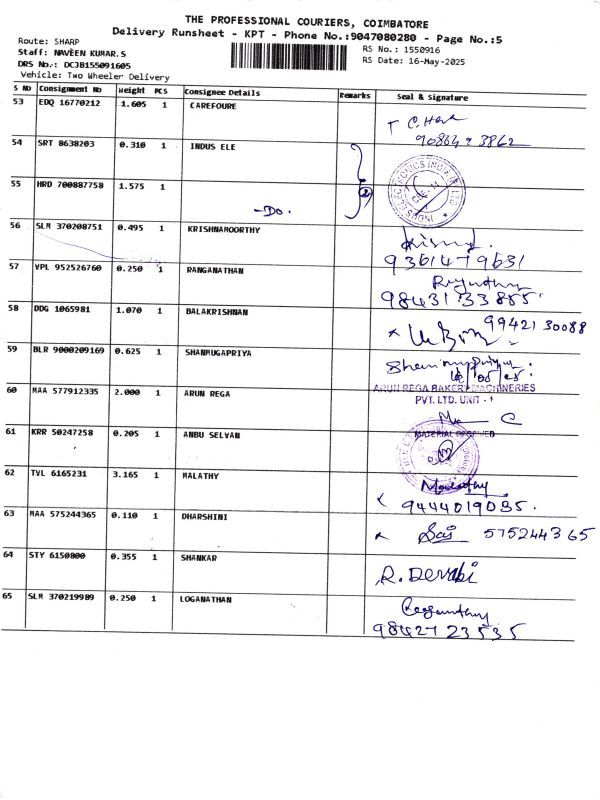 THE PROFESSIONAL COURIERS, COIMBATORE
Delivery Runsheet - KPT - Phone No.:9047080280 - Page No.:5
Route: SHARP
Staff: NAVEEN KUMAR.S
DRS No.: DCJB155091605
Vehicle: Two Wheeler Delivery
RS No.: 1550916
RS Date: 16-May-2025
S No Consignment No Weight PCS Consignee Details Remarks Seal & signature
53 EDQ 16770212 1.605 1 CAREFOURE
54 SRT 8638203 0.310 1 INDUS ELE
55 HRD 700887758 1.575 1 -Do. 2
56 SLM 370208751 0.495 1 KRISHNAMOORTHY
9361479631
57 VPL 952526760 0.250 1 RANGANATHAN
98431 33885
58 DDG 1065981 1.070 1 BALAKRISHNAN
99421 30088
59 BLR 9000209169 0.625 1 SHANMUGAPRIYA
60 MAA 577912335 2.000 1 ARUN REGA
ARUN REGA BAKERY MACHINERIES
PVT. LTD. UNIT - 1
61 KRR 50247258 0.205 1 ANBU SELVAN
MATERIAL RECEIVED
62 TVL 6165231 3.165 1 MALATHY
Malathy
9444019035.
63 MAA 575244365 0.110 1 DHARSHINI
575244365
64 STY 6150800 0.355 1 SHANKAR
R. Devabi
65 SLM 370219989 0.250 1 LOGANATHAN
98427 23535